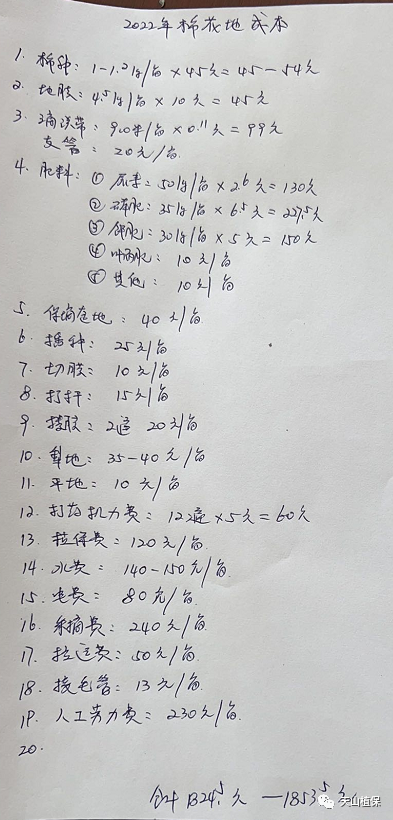 2022年棉花地成本
1. 棉种: 1-1.2kg/亩 × 45元 = 45-54元
2. 地膜: 4.5kg/亩 × 10元 = 45元
3. 滴灌带: 900米/亩 × 0.11元 = 99元
支管: 20元/亩.
4. 肥料: ① 尿素: 50kg/亩 × 2.6元 = 130元
② 磷肥: 35kg/亩 × 6.5元 = 227.5元
③ 钾肥: 30kg/亩 × 5元 = 150元
④ 叶面肥: 10元/亩
⑤ 其他: 10元/亩
5. 地: 40元/亩.
6. 播种: 25元/亩
7. 切膜: 10元/亩
8. 打杆: 15元/亩
9. 搂膜: 2遍 20元/亩
10. 犁地: 35-40元/亩
11. 平地: 10元/亩
12. 打药机力费: 12遍×5元 = 60元
13. 费: 120元/亩.
14. 水费: 140-150元/亩.
15. 电费: 80元/亩.
16. 采摘费: 240元/亩.
17. 拉运费: 50元/亩.
18. 接毛管: 13元/亩.
19. 人工劳力费: 230元/亩.
20.
合计 1824.5元 — 1853.5元
矢山植保